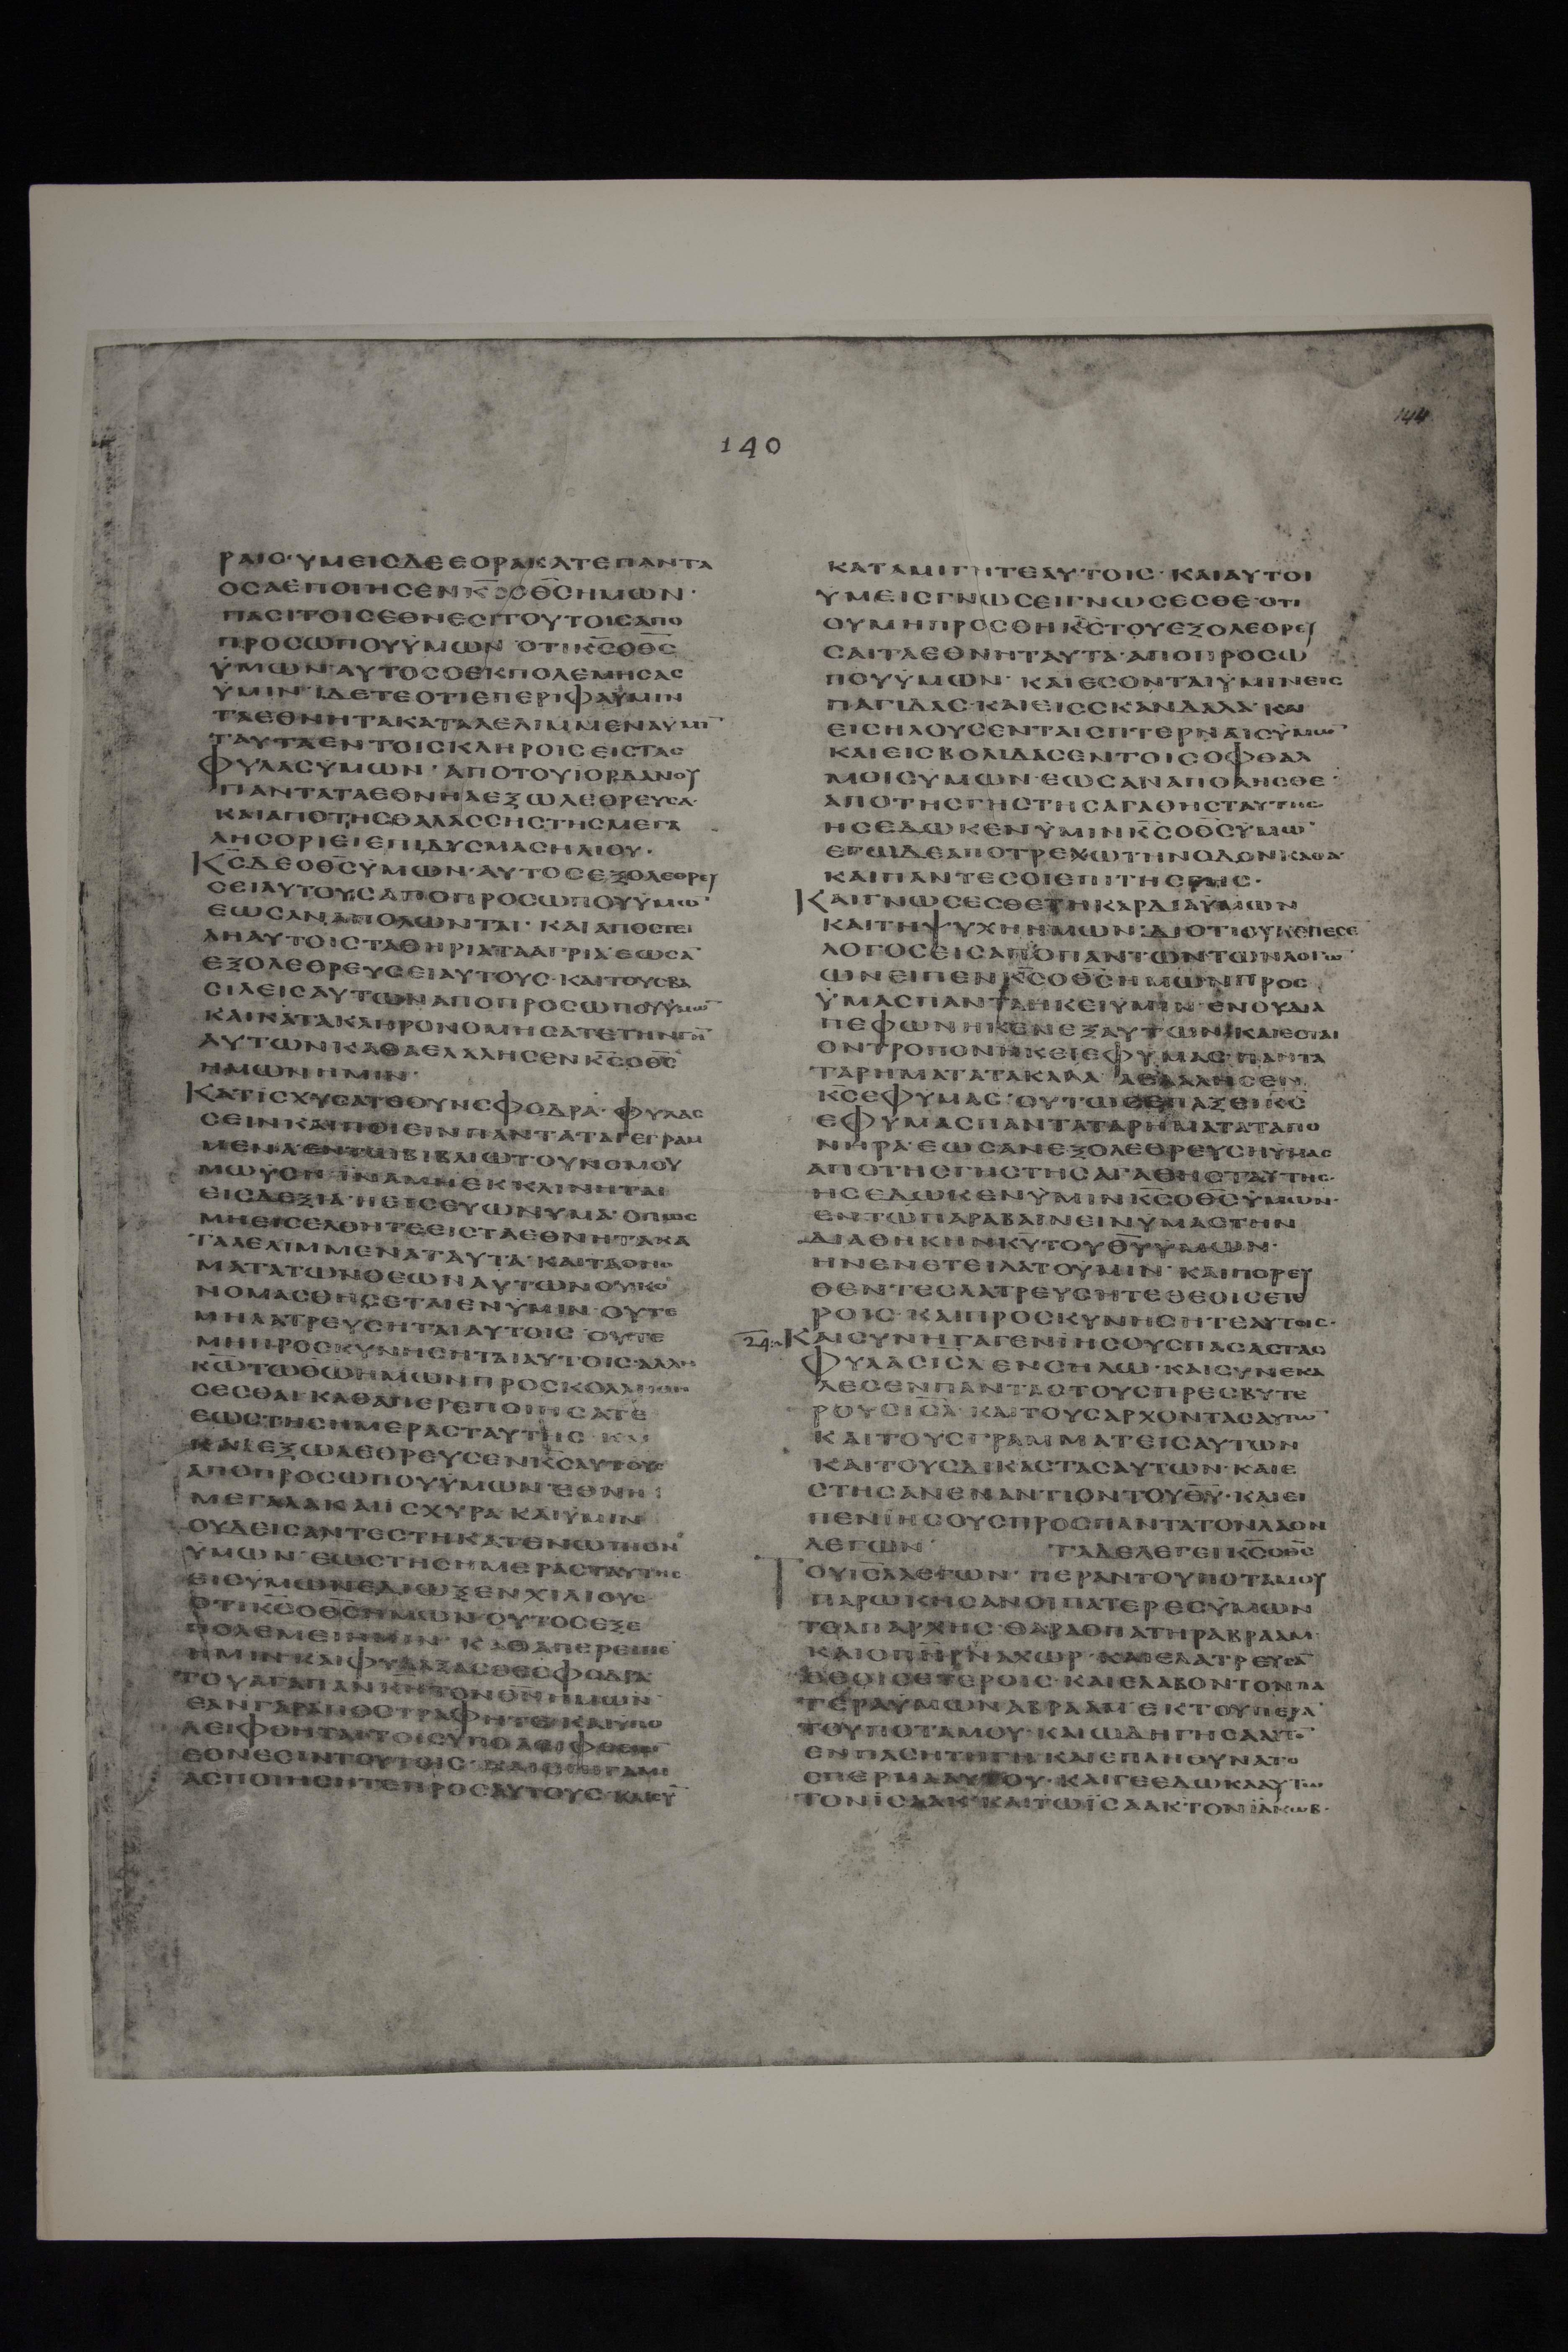 140
144
ΡΑΙϹ·ΥΜΕΙϹΔΕΕΟΡΑΚΑΤΕΠΑΝΤΑ
ΟϹΑΕΠΟΙΗϹΕΝΚ̅Ϲ̅ΟΘ̅Ϲ̅ΗΜΩΝ·
ΠΑϹΙΤΟΙϹΕΘΝΕϹΙΤΟΥΤΟΙϹΑΠΟ
ΠΡΟϹΩΠΟΥΫΜΩΝ ΟΤΙΚ̅Ϲ̅ΟΘ̅Ϲ̅
ΫΜΩΝ·ΑΥΤΟϹΟΕΚΠΟΛΕΜΗϹΑϹ
ΫΜΙΝ·ΙΔΕΤΕΟΤΙΕΠΕΡΙΦΑΫΜΙΝ
ΤΑΕΘΝΗΤΑΚΑΤΑΛΕΛΙΜΜΕΝΑΫΜΙ̅
ΤΑΥΤΑΕΝΤΟΙϹΚΛΗΡΟΙϹΕΙϹΤΑϹ
ΦΥΛΑϹΫΜΩΝ·ΑΠΟΤΟΥΙΟΡΔΑΝΟΥ
ΠΑΝΤΑΤΑΕΘΝΗΑΕΞΩΛΕΘΡΕΥϹΑ·
ΚΑΙΑΠΟΤΗϹΘΑΛΑϹϹΗϹΤΗϹΜΕΓΑ
ΛΗϹΟΡΙΕΙΕΠΙΔΥϹΜΑϹΗΛΙΟΥ·
Κ̅Ϲ̅ΔΕΟΘ̅Ϲ̅ΫΜΩΝ·ΑΥΤΟϹΕΞΟΛΕΘΡΕΥ
ϹΕΙΑΥΤΟΥϹΑΠΟΠΡΟϹΩΠΟΥΫΜΩ̅·
ΕΩϹΑΝΑΠΟΛΩΝΤΑΙ·ΚΑΙΑΠΟϹΤΕΙ
ΛΗΑΥΤΟΙϹΤΑΘΗΡΙΑΤΑΑΓΡΙΑ·ΕΩϹΑ̅
ΕΞΟΛΕΘΡΕΥϹΕΙΑΥΤΟΥϹ·ΚΑΙΤΟΥϹΒΑ
ϹΙΛΕΙϹΑΥΤΩΝΑΠΟΠΡΟϹΩΠΟΥΫΜΩ̅
ΚΑΙΚΑΤΑΚΛΗΡΟΝΟΜΗϹΑΤΕΤΗΝΓΗ̅
ΑΥΤΩΝΚΑΘΑΕΛΑΛΗϹΕΝΚ̅Ϲ̅ΟΘ̅Ϲ̅
ΗΜΩΝΗΜΙΝ·
ΚΑΤΙϹΧΥϹΑΤΕΟΥΝϹΦΟΔΡΑ·ΦΥΛΑϹ
ϹΕΙΝΚΑΙΠΟΙΕΙΝΠΑΝΤΑΤΑΓΕΓΡΑΜ
ΜΕΝΑΕΝΤΩΒΙΒΛΙΩΤΟΥΝΟΜΟΥ
ΜΩΫϹΗ·ΙΝΑΜΗΕΚΚΛΙΝΗΤΑΙ
ΕΙϹΔΕΞΙΑ·ΗΕΙϹΕΥΩΝΥΜΑ·ΟΠΩϹ
ΜΗΕΙϹΕΛΘΗΤΕΕΙϹΤΑΕΘΝΗΤΑΚΑ
ΤΑΛΕΛΙΜΜΕΝΑΤΑΥΤΑ·ΚΑΙΤΑΟΝΟ
ΜΑΤΑΤΩΝΘΕΩΝΑΥΤΩΝΟΥΚΟ
ΝΟΜΑϹΘΗϹΕΤΑΙΕΝΫΜΙΝ·ΟΥΤΕ
ΜΗΛΑΤΡΕΥϹΗΤΑΙΑΥΤΟΙϹ·ΟΥΤΕ
ΜΗΠΡΟϹΚΥΝΗϹΗΤΑΙΑΥΤΟΙϹ·ΑΛΛΑ
Κ̅Ω̅ΤΩΘ̅Ω̅ΗΜΩΝΠΡΟϹΚΟΛΛΗΘΗ
ϹΕϹΘΑΙ·ΚΑΘΑΠΕΡΕΠΟΙΗϹΑΤΕ
ΕΩϹΤΗϹΗΜΕΡΑϹΤΑΥΤΗϹ·ΚΑΙ
ΚΑΙΕΞΩΛΕΘΡΕΥϹΕΝΚ̅Ϲ̅ΑΥΤΟΥϹ
ΑΠΟΠΡΟϹΩΠΟΥΫΜΩΝΕΘΝΗ
ΜΕΓΑΛΑΚΑΙΙϹΧΥΡΑ·ΚΑΙΫΜΙΝ
ΟΥΔΕΙϹΑΝΤΕϹΤΗΚΑΤΕΝΩΠΙΟΝ
ΫΜΩΝ·ΕΩϹΤΗϹΗΜΕΡΑϹΤΑΥΤΗϹ
ΕΙϹΫΜΩΝΕΔΙΩΞΕΝΧΙΛΙΟΥϹ·
ΟΤΙΚ̅Ϲ̅ΟΘ̅Ϲ̅ΗΜΩΝΟΥΤΟϹΕΞΕ
ΠΟΛΕΜΕΙΗΜΙΝ·ΚΑΘΑΠΕΡΕΙΠΕ̅
ΗΜΙΝ·ΚΑΙΦΥΛΑΞΑϹΘΕϹΦΟΔΡΑ
ΤΟΥΑΓΑΠΑΝΚ̅Ν̅ΤΟΝΘ̅Ν̅ΗΜΩΝ·
ΕΑΝΓΑΡΑΠΟϹΤΡΑΦΗΤΕ·ΚΑΙΫΠΟ
ΛΕΙΦΘΗΤΑΙΤΟΙϹΥΠΟΛΕΙΦΘΕΙϹΙ̅
ΕΘΝΕϹΙΝΤΟΥΤΟΙϹ·ΚΑΙΕΠΙΓΑΜΙ
ΑϹΠΟΙΗϹΗΤΕΠΡΟϹΑΥΤΟΥϹ·ΚΑΙϹΥ̅
ΚΑΤΑΜΙΓΗΤΕΑΥΤΟΙϹ·ΚΑΙΑΥΤΟΙ
ΥΜΕΙϹΓΝΩϹΕΙΓΝΩϹΕϹΘΕ·ΟΤΙ
ΟΥΜΗΠΡΟϹΘΗΚ̅Ϲ̅ΤΟΥΕΞΟΛΕΘΡΕΥ
ϹΑΙΤΑΕΘΝΗΤΑΥΤΑ·ΑΠΟΠΡΟϹΩ
ΠΟΥΫΜΩΝ·ΚΑΙΕϹΟΝΤΑΙΫΜΙΝΕΙϹ
ΠΑΓΙΔΑϹ·ΚΑΙΕΙϹϹΚΑΝΔΑΛΑ·ΚΑΙ
ΕΙϹΗΛΟΥϹΕΝΤΑΙϹΠΤΕΡΝΑΙϹΫΜΩ̅
ΚΑΙΕΙϹΒΟΛΙΔΑϹΕΝΤΟΙϹΟΦΘΑΛ
ΜΟΙϹΥΜΩΝ·ΕΩϹΑΝΑΠΟΛΗϹΘΕ·
ΑΠΟΤΗϹΓΗϹΤΗϹΑΓΑΘΗϹΤΑΥΤΗϹ
ΗϹΕΔΩΚΕΝΫΜΙΝΚ̅Ϲ̅ΟΘ̅Ϲ̅ΫΜΩ̅·
ΕΓΩΔΕΑΠΟΤΡΕΧΩΤΗΝΟΔΟΝΚΑΘΑ·
ΚΑΙΠΑΝΤΕϹΟΙΕΠΙΤΗϹΓΗϹ·
ΚΑΙΓΝΩϹΕϹΘΕΤΗΚΑΡΔΙΑΥΜΩΝ
ΚΑΙΤΗΨΥΧΗΗΜΩΝ·ΔΙΟΤΙΟΥΚΕΠΕϹΕ
ΛΟΓΟϹΕΙϹΑΠΟΠΑΝΤΩΝΤΩΝΛΟΓΩ̅
ΩΝΕΙΠΕΝΚ̅Ϲ̅ΟΘ̅Ϲ̅ΗΜΩΝΠΡΟϹ
ΫΜΑϹΠΑΝΤΑΗΚΕΙΥΜΙΝ·ΕΝΟΥΔΙΑ
ΠΕΦΩΝΗΚΕΝΕΞΑΥΤΩΝ·ΚΑΙΕϹΤΑΙ
ΟΝΤΡΟΠΟΝΗΚΕΙΕΦΥΜΑϹ·ΠΑΝΤΑ
ΤΑΡΗΜΑΤΑΤΑΚΑΛΑ ΑΕΛΑΛΗϹΕΝ
Κ̅Ϲ̅ΕΦΥΜΑϹ·ΟΥΤΩϹΕΠΑΞΕΙΚ̅Ϲ̅
ΕΦΥΜΑϹΠΑΝΤΑΤΑΡΗΜΑΤΑΤΑΠΟ
ΝΗΡΑ·ΕΩϹΑΝΕΞΟΛΕΘΡΕΥϹΗΫΜΑϹ
ΑΠΟΤΗϹΓΗϹΤΗϹΑΓΑΘΗϹΤΑΥΤΗϹ·
ΗϹΕΔΩΚΕΝΫΜΙΝΚ̅Ϲ̅ΟΘ̅Ϲ̅ΫΜΩΝ·
ΕΝΤΩΠΑΡΑΒΑΙΝΕΙΝΥΜΑϹΤΗΝ
ΔΙΑΘΗΚΗΝΚ̅Υ̅ΤΟΥΘ̅Υ̅ΫΜΩΝ·
ΗΝΕΝΕΤΕΙΛΑΤΟΥΜΙΝ·ΚΑΙΠΟΡΕΥ
ΘΕΝΤΕϹΛΑΤΡΕΥϹΗΤΕΘΕΟΙϹΕΤΕ
ΡΟΙϹ·ΚΑΙΠΡΟϹΚΥΝΗϹΗΤΕΑΥΤΟΙϹ·
24 ΚΑΙϹΥΝΗΓΑΓΕΝΙΗϹΟΥϹΠΑϹΑϹΤΑϹ
ΦΥΛΑϹΙ̅Ϲ̅Λ̅ΕΝϹΗΛΩ·ΚΑΙϹΥΝΕΚΑ
ΛΕϹΕΝΠΑΝΤΑϹΤΟΥϹΠΡΕϹΒΥΤΕ
ΡΟΥϹΙ̅Ϲ̅Λ̅·ΚΑΙΤΟΥϹΑΡΧΟΝΤΑϹΑΥΤΩ̅
ΚΑΙΤΟΥϹΓΡΑΜΜΑΤΕΙϹΑΥΤΩΝ
ΚΑΙΤΟΥϹΔΙΚΑϹΤΑϹΑΥΤΩΝ·ΚΑΙΕ
ϹΤΗϹΑΝΕΝΑΝΤΙΟΝΤΟΥΘ̅Υ̅·ΚΑΙΕΙ
ΠΕΝΙΗϹΟΥϹΠΡΟϹΠΑΝΤΑΤΟΝΛΑΟΝ
ΛΕΓΩΝ· ΤΑΔΕΛΕΓΕΙΚ̅Ϲ̅ΟΘ̅Ϲ̅
ΤΟΥΙ̅Ϲ̅Λ̅ΛΕΓΩΝ·ΠΕΡΑΝΤΟΥΠΟΤΑΜΟΥ
ΠΑΡΩΚΗϹΑΝΟΙΠΑΤΕΡΕϹΫΜΩΝ
ΤΟΑΠΑΡΧΗϹ·ΘΑΡΑΟΠΑΤΗΡΑΒΡΑΑΜ·
ΚΑΙΟΠ̅Η̅Ρ̅ΝΑΧΩΡ·ΚΑΙΕΛΑΤΡΕΥϹΑ̅
ΘΕΟΙϹΕΤΕΡΟΙϹ·ΚΑΙΕΛΑΒΟΝΤΟΝΠΑ
ΤΕΡΑΥΜΩΝΑΒΡΑΑΜ·ΕΚΤΟΥΠΕΡΑ̅
ΤΟΥΠΟΤΑΜΟΥ·ΚΑΙΩΔΗΓΗϹΑΑΥΤΟ̅
ΕΝΠΑϹΗΤΗΓΗ·ΚΑΙΕΠΛΗΘΥΝΑΤΟ
ϹΠΕΡΜΑΑΥΤΟΥ·ΚΑΙΓΕΕΔΩΚΑΑΥΤΩ
ΤΟΝΙϹΑΑΚ·ΚΑΙΤΩΪϹΑΑΚΤΟΝΪΑΚΩΒ·